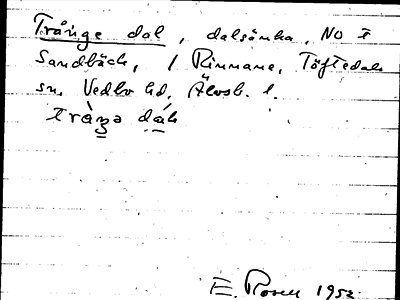 Trånge dal, dalsänka, NO f
Sandbäck, / Rinnane, Töftedals
sn, Vedbo hd, Älvsb. l.
tràŋə dáh
E. Rosell 1952